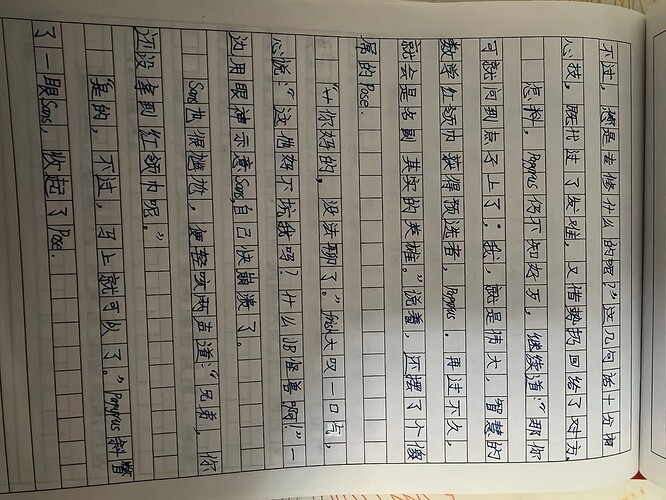 不过，您是去修什么的呢？”这几句话十分有
心技，既化过了发难，又借势扔回给了对方。
怎料，Papyrus仍不知好歹，继续道：“那你
可就问到点子上了；我，就是伟大，智慧的
数学红领巾获得预选者，Papyrus。再过不久，
就会是名副其实的英雄。”说着，还摆了个傻
屌的Pose.
你好的，没法聊了。”frisk大叹一口气，
心说：“这他妈不坑我吗？什么JB怪兽啊！”一
边用眼神示意Sans，自己快崩溃了。
Sans也很尴尬，便轻咳两声道：“兄弟，你
还没拿到红领巾呢。”
“是的，不过，马上就可以了。”Papyrus斜瞥
了一眼Sans，收起了Pose.